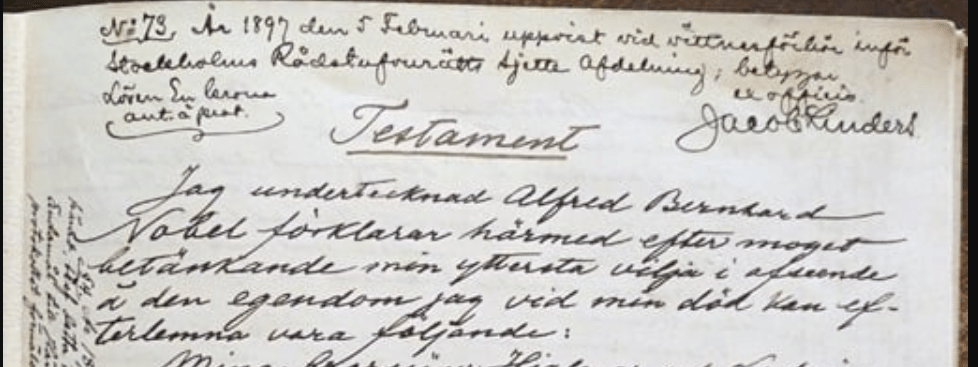 No 73. År 1897 den 5 Februari uppvist vid vittnesförhör inför
Stockholms Rådstufvurätts sjette Afdelning; betygar
ex officio.
Lösen En krona
ant. à prot.
Jacob Linders
Testament
Jag undertecknad Alfred Bernhard
Nobel förklarar härmed efter moget
betänkande min yttersta vilja i afseende
å den egendom jag vid min död kan ef-
terlemna vara följande:
Mina